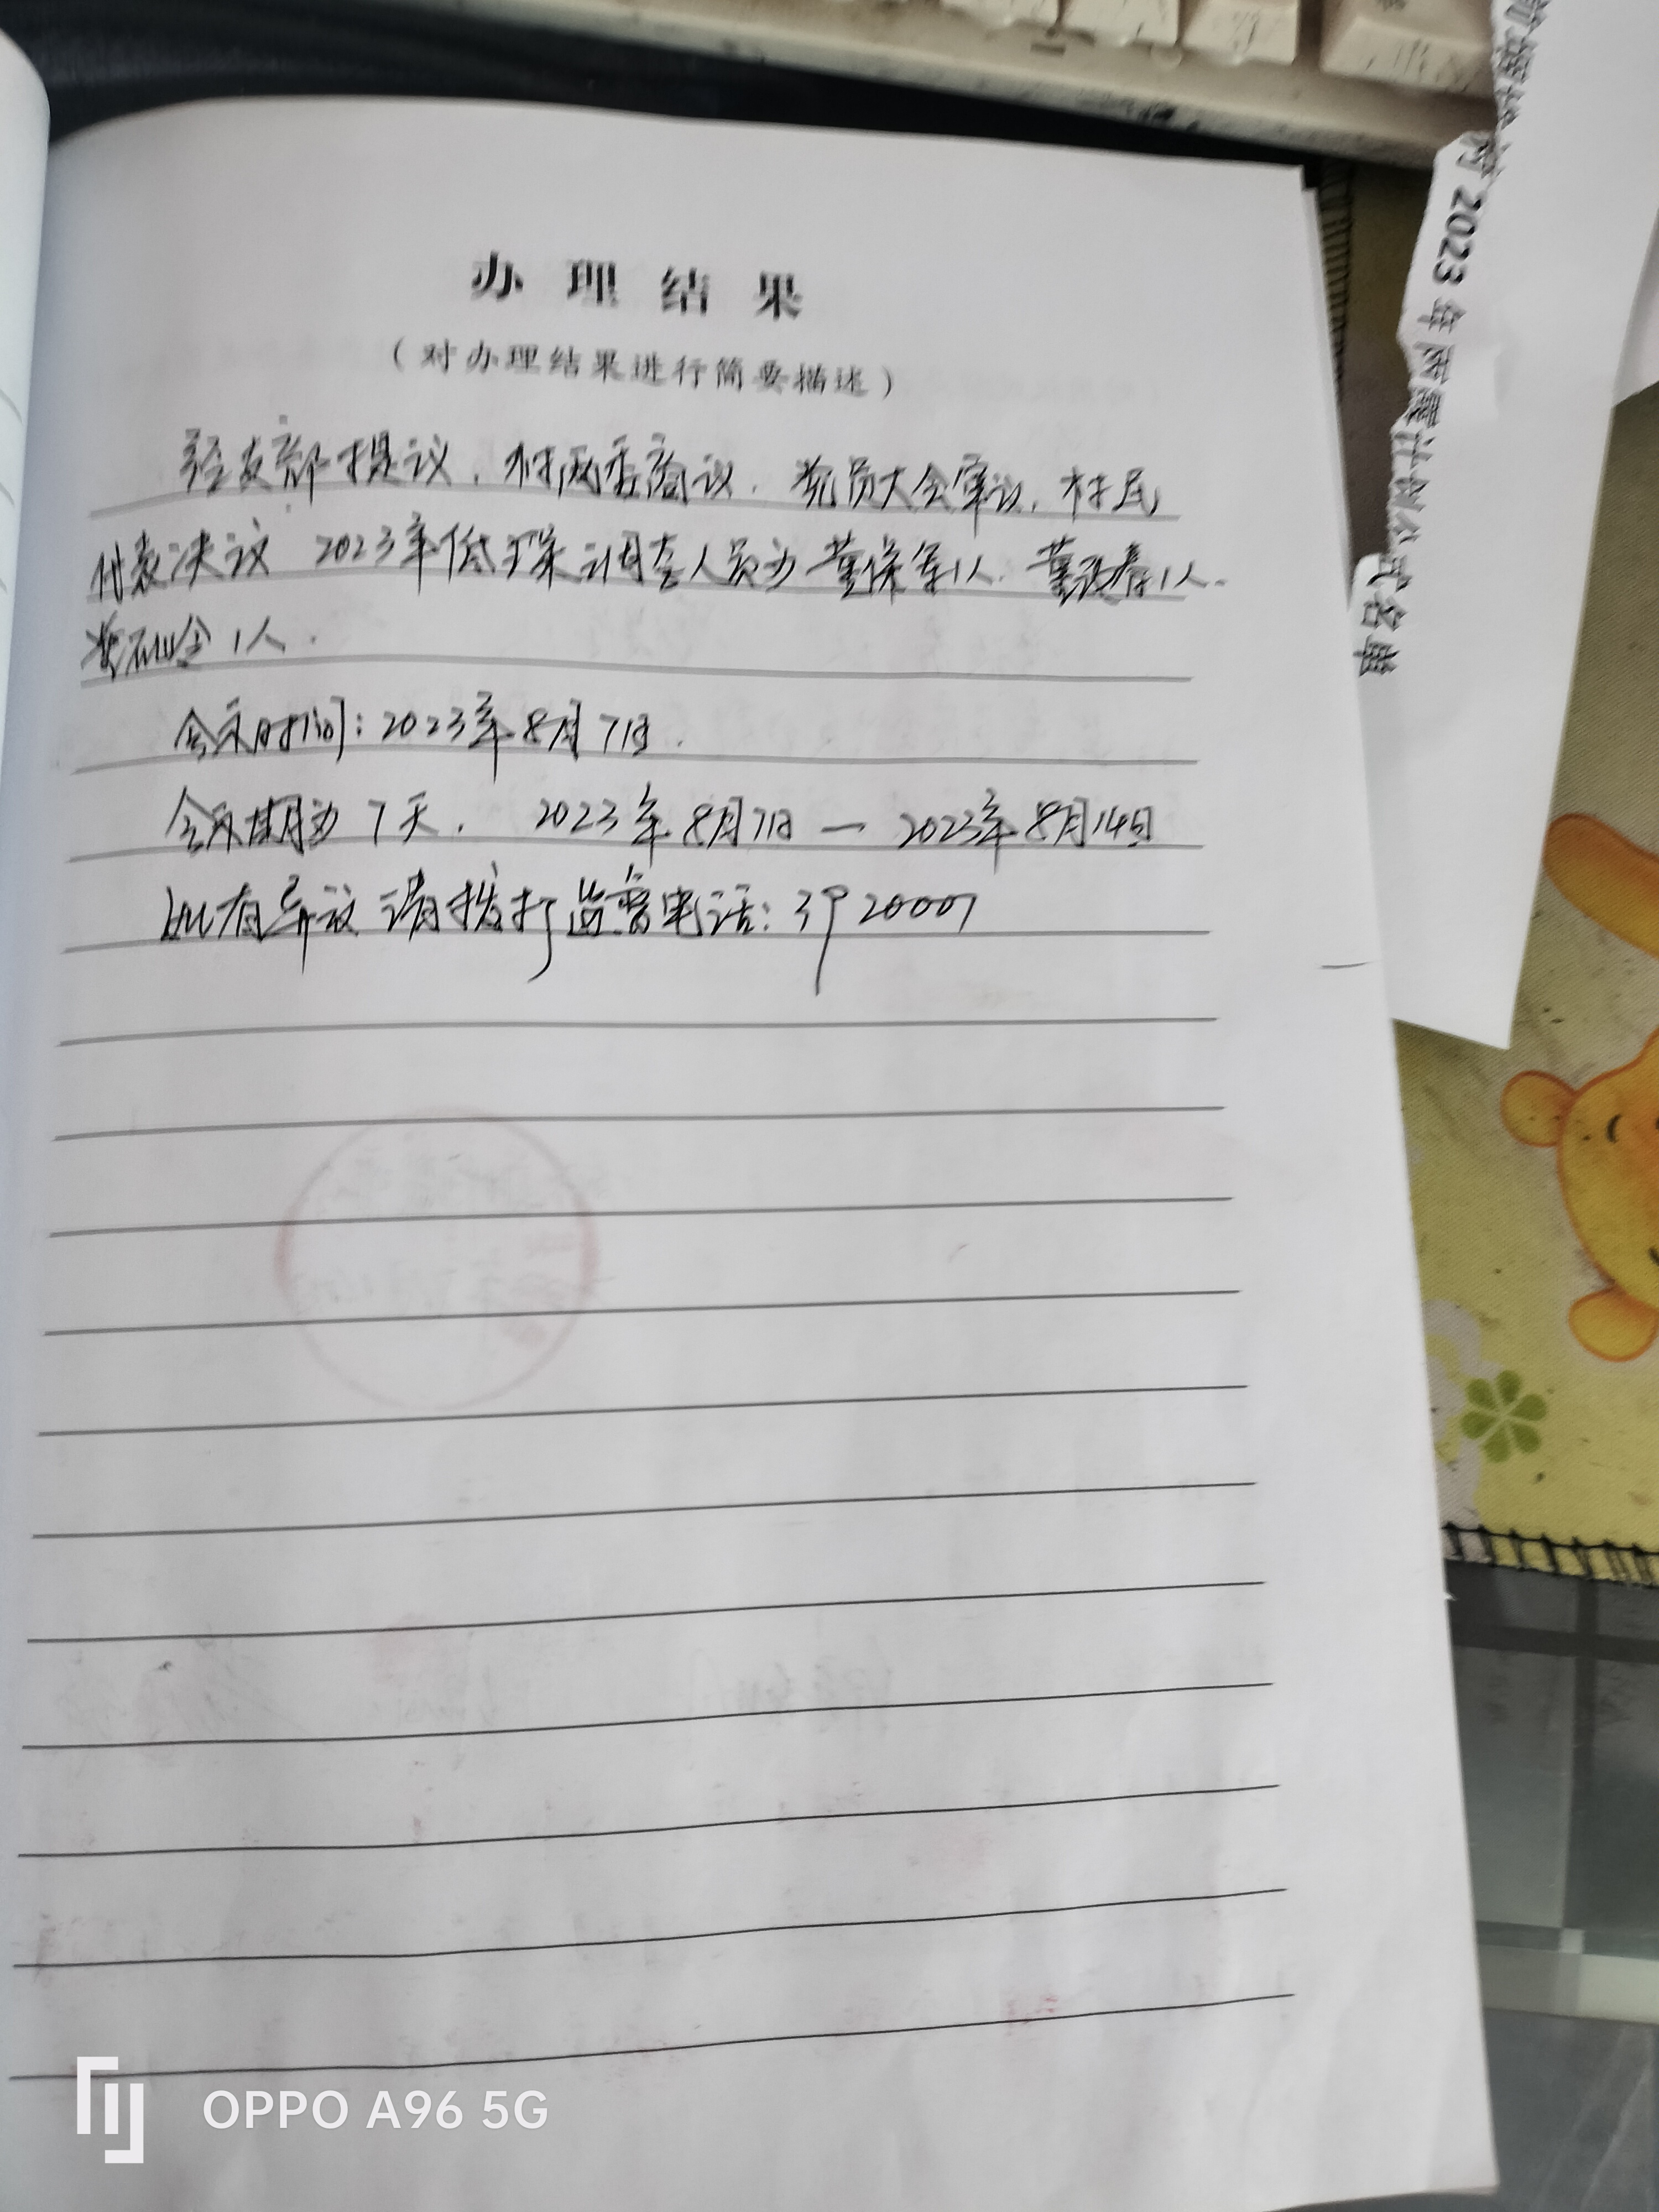 办理结果
（对办理结果进行简要描述）
经支部提议，村两委商议，党员大会审议，村民
代表决议 2023年低保调查人员为 董保军1人 董 春1人
1人.
会议时间:2023年8月7日.
期为7天. 2023年8月7日 — 2023年8月14日
如有异议请拨打监督电话: 20007
2023年雨露计划公式名单
OPPO A96 5G